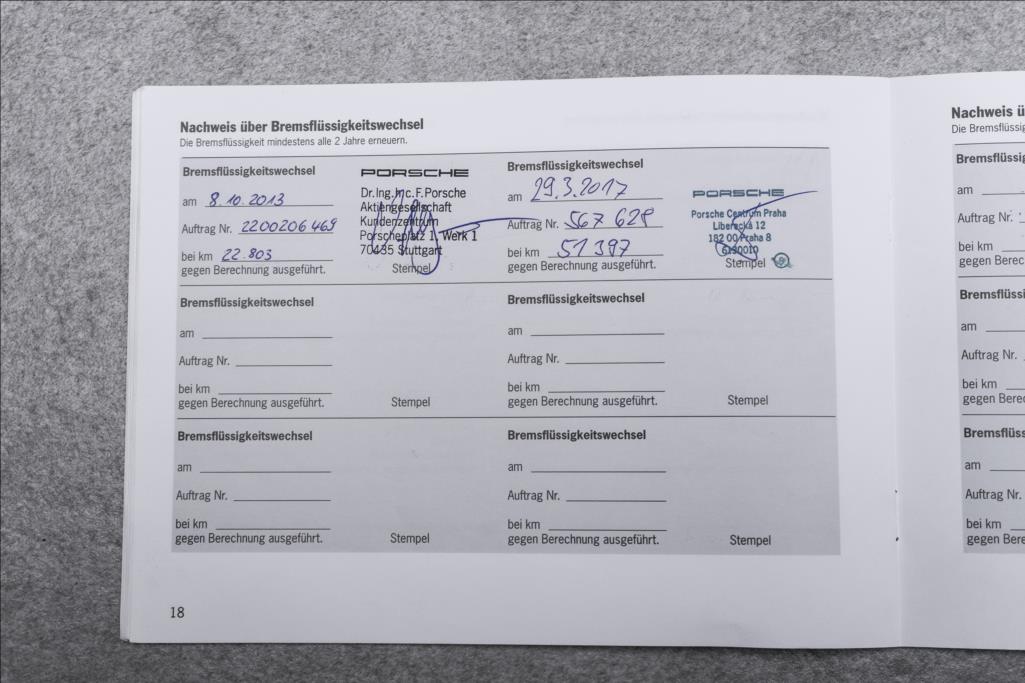 Nachweis über Bremsflüssigkeitswechsel
Die Bremsflüssigkeit mindestens alle 2 Jahre erneuern.
Bremsflüssigkeitswechsel
am 8.10.2013
Auftrag Nr. 2200206469
bei km 22.803
gegen Berechnung ausgeführt.
PORSCHE
Dr. Ing. h.c. F. Porsche
Aktiengesellschaft
Kundenzentrum
Porscheplatz 1, Werk 1
70435 Stuttgart
Stempel
Bremsflüssigkeitswechsel
am 29.3.2017
Auftrag Nr. 567 628
bei km 51 397
gegen Berechnung ausgeführt.
PORSCHE
Porsche Centrum Praha
Liberecká 12
182 00 Praha 8
Stempel
Bremsflüssigkeitswechsel
am
Auftrag Nr.
bei km
gegen Berechnung ausgeführt.
Stempel
Bremsflüssigkeitswechsel
am
Auftrag Nr.
bei km
gegen Berechnung ausgeführt.
Stempel
Bremsflüssigkeitswechsel
am
Auftrag Nr.
bei km
gegen Berechnung ausgeführt.
Stempel
Bremsflüssigkeitswechsel
am
Auftrag Nr.
bei km
gegen Berechnung ausgeführt.
Stempel
18
Nachweis
Die
am
Auftrag Nr.
bei km
gegen
am
Auftrag Nr.
bei km
gegen
am
Auftrag Nr.
bei km
gegen